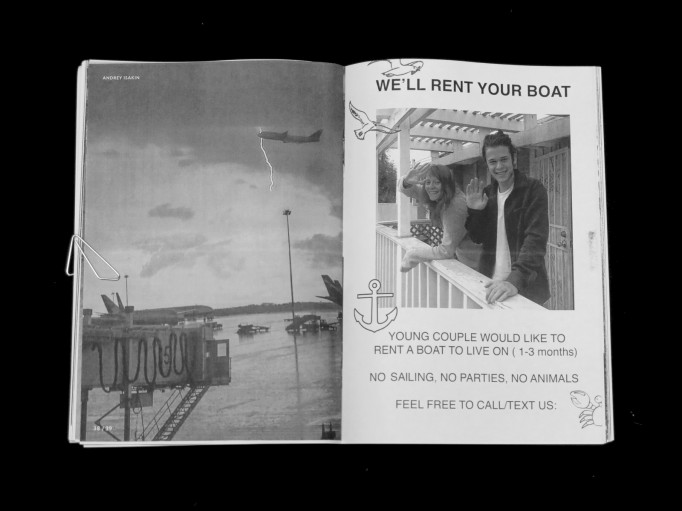 ANDREY GAKIN
38 / 39
WE'LL RENT YOUR BOAT
YOUNG COUPLE WOULD LIKE TO
RENT A BOAT TO LIVE ON ( 1-3 months)
NO SAILING, NO PARTIES, NO ANIMALS
FEEL FREE TO CALL/TEXT US: